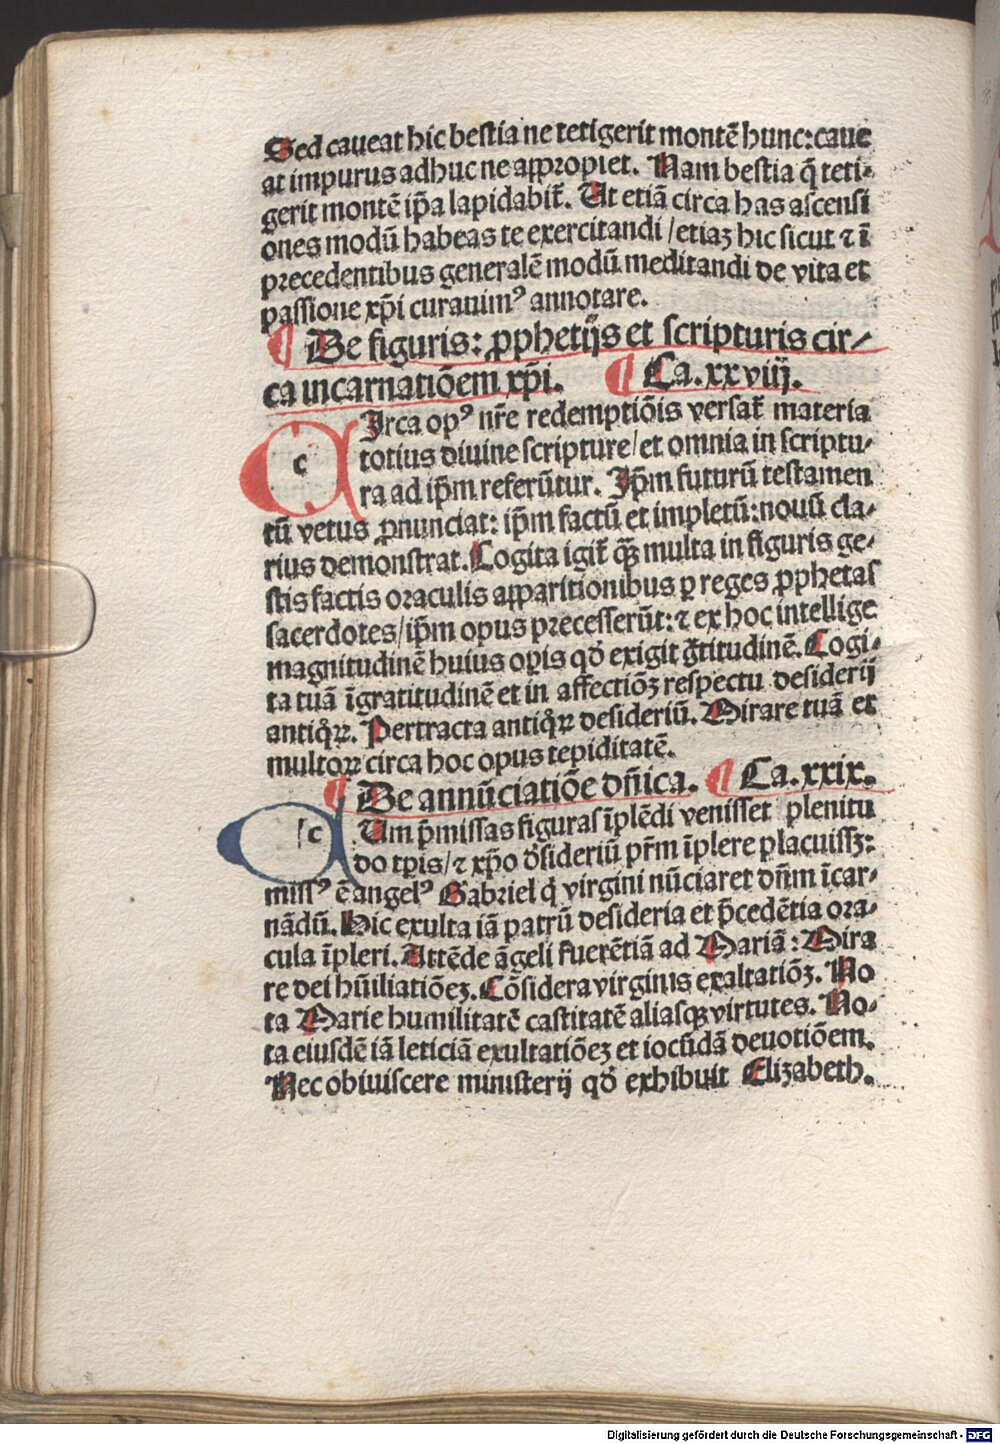 Sed caueat hic bestia ne tetigerit montē hunc: caue
at impurus adhuc ne appropiet. Nam bestia q̄ teti-
gerit montē ip̄a lapidabit᷑. Ut etiā circa has ascensi
ones modū habeas te exercitandi / etiaꝫ hic sicut ⁊ ī
precedentibus generalē modū meditandi de vita et
passione xp̄i curauimꝰ annotare.
¶ De figuris: ꝓphetijs et scripturis cir-
ca incarnatiōem xp̄i. ¶ Ca. xxviij.
c Irca opꝰ nr̄e redemptiōis versat᷑ materia
totius diuine scripture / et omnia in scriptu-
ra ad ip̄m referūtur. Ip̄m futurū testamen
tū vetus ꝓnunciat: ip̄m factū et impletū: nouū cla-
rius demonstrat. Cogita igit᷑ qꝫ̄ multa in figuris ge-
stis factis oraculis apparitionibus ꝑ reges ꝓphetas
sacerdotes / ip̄m opus precesserūt: ⁊ ex hoc intellige
magnitudinē huius oꝑis qd̓ exigit gͣtitudinē. Cogi-
ta tuā īgratitudinē et in affectiōꝫ respectu desiderij
antiqͦꝝ. Pertracta antiqͦꝝ desideriū. Mirare tuā et
multoꝝ circa hoc opus tepiditatē.
¶ De annūciatiōe dn̄ica. ¶ Ca. xxix.
c Um p̄missas figuras īplēdi venisset plenitu
do tꝑis / ⁊ xp̄o d̓sideriū pr̄m īplere placuissꝫ:
missꝰ ē angelꝰ Gabriel qͥ virgini nūciaret dn̄m īcar-
nādū. Hic exulta iā patrū desideria et p̄cedētia ora-
cula īpleri. Attēde āgeli fuerētiā ad Mariā: Mira
re dei hūiliatiōeꝫ. Cōsidera virginis exaltatiōꝫ. No
ta Marie humilitatē castitatē aliasqꝫ virtutes. No-
ta eiusdē iā leticiā exultatiōeꝫ et iocūdā deuotiōem.
Nec obiuiscere ministerij qd̓ exhibuit Elizabeth.
Digitalisierung gefördert durch die Deutsche Forschungsgemeinschaft - DFG